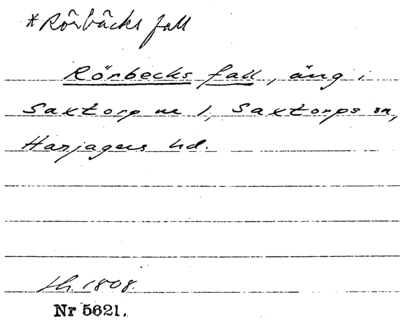 *Rörbäcks fall
Rörbecks fall, äng i
Saxtorp nr 1, Saxtorps sn,
Harjagers hd.
1808.
Nr 5621.